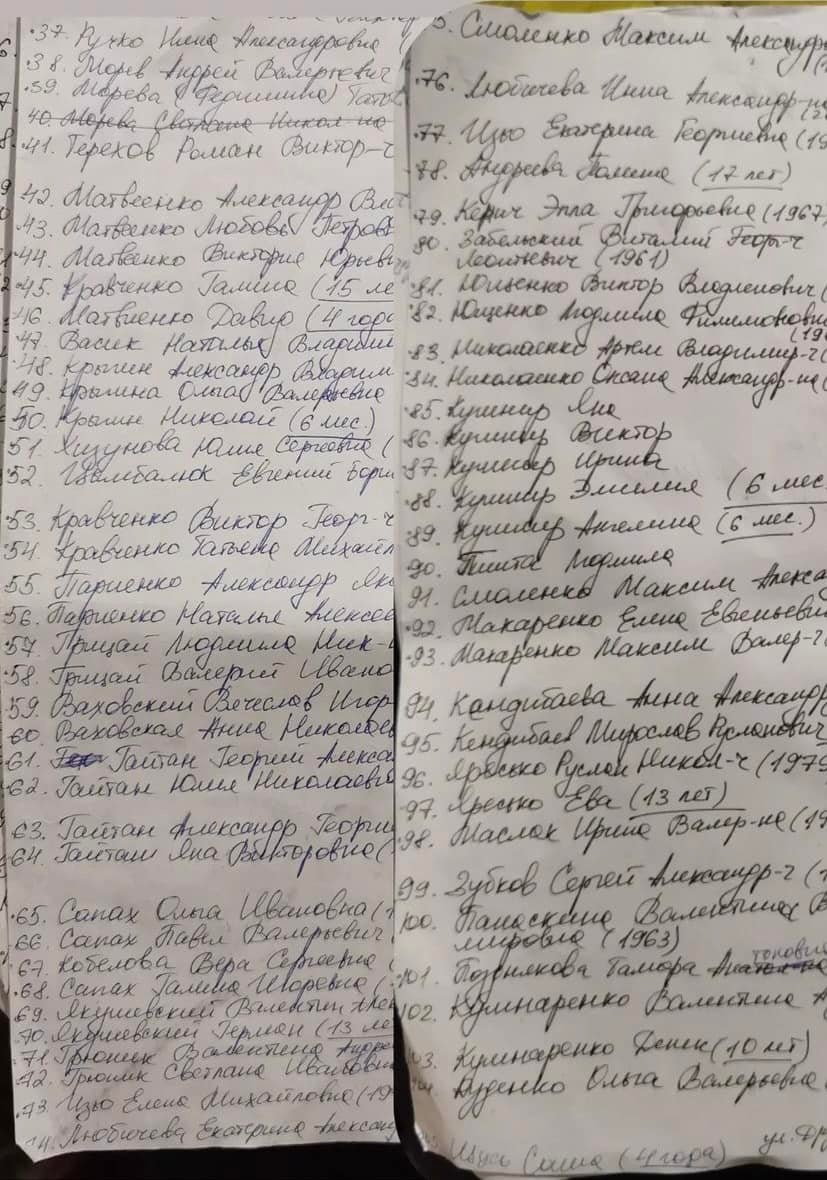 37. Ручко Инна Александровна (
38. Морев Андрей Валерьевич
39. Морева (Федишина) Татья
40. Морева Светлана Никол-на
41. Терехов Роман Виктор-ч
42. Матвеенко Александр Вла
43. Матвеенко Любовь Петров
44. Матвеенко Виктория Юрьев
45. Кравченко Галина (15 ле
46. Матвиенко Давид (4 года
47. Васик Наталья Владими
48. Крылин Александр Владим
49. Крылина Ольга Валерьевна
50. Крылин Николай (6 мес.)
51. Хизунова Юлия Сергеевна (
52. Цымбалюк Евгений Бори
53. Кравченко Виктор Георг-ч
54. Кравченко Татьяна Михайл
55. Париенко Александр Як
56. Париенко Наталья Алексее
57. Грицай Людмила Ник-
58. Грицай Валерий Ивано
59. Ваховский Вячеслав Игор
60. Ваховская Анна Николаев
61. Гайтан Георгий Алекса
62. Гайтан Юлия Николаевн
63. Гайтан Александр Георги
64. Гайтан Яна Викторовна (
65. Сапах Ольга Ивановна (1
66. Сапах Павел Валерьевич
67. Кобелова Вера Сергеевна (
68. Сапах Галина Игоревна (
69. Якушевский Валентин Алек
70. Якушевский Герман (13 ле
71. Грюмик Валентина Андре
72. Грюмик Светлана Ивановн
73. Изю Елена Михайловна (19
74. Любичева Екатерина Александ
5. Смоленко Максим Александр
76. Любичева Инна Александр-на
77. Изю Екатерина Георгиевна (19
78. Андреева Полина (17 лет)
79. Керич Элла Григорьевна (1967,
80. Забельский Виталий Георг-ч
Леонтьевич (1961)
81. Ющенко Виктор Владленович (
82. Ющенко Людмила Филимоновн
83. Николаенко Артём Владимир-ч (
84. Николаенко Оксана Александр-на (
85. Кушнир Яна
86. Кушнир Виктор
87. Кушнир Ирина
88. Кушнир Эмилия (6 мес
89. Кушнир Ангелина (6 мес.)
90. Пшита Людмила
91. Смоленко Максим Алекса
92. Макаренко Елена Евгеньевн
93. Макаренко Максим Валер-ч
94. Кандибаева Анна Александр
95. Кендибаев Мирослав Русланович
96. Яресько Руслан Никол-ч (1979
97. Яресько Ева (13 лет)
98. Маслак Ирина Валер-на (19
99. Зубков Сергей Александр-ч (1
100. Панаскина Валентина В
мировна (1963)
101. Позднякова Тамара Анатольевна
102. Кулинаренко Валентина А
103. Кулинаренко Денис (10 лет)
Руденко Ольга Валерьевна (
Саша (4 года)
ул. Др